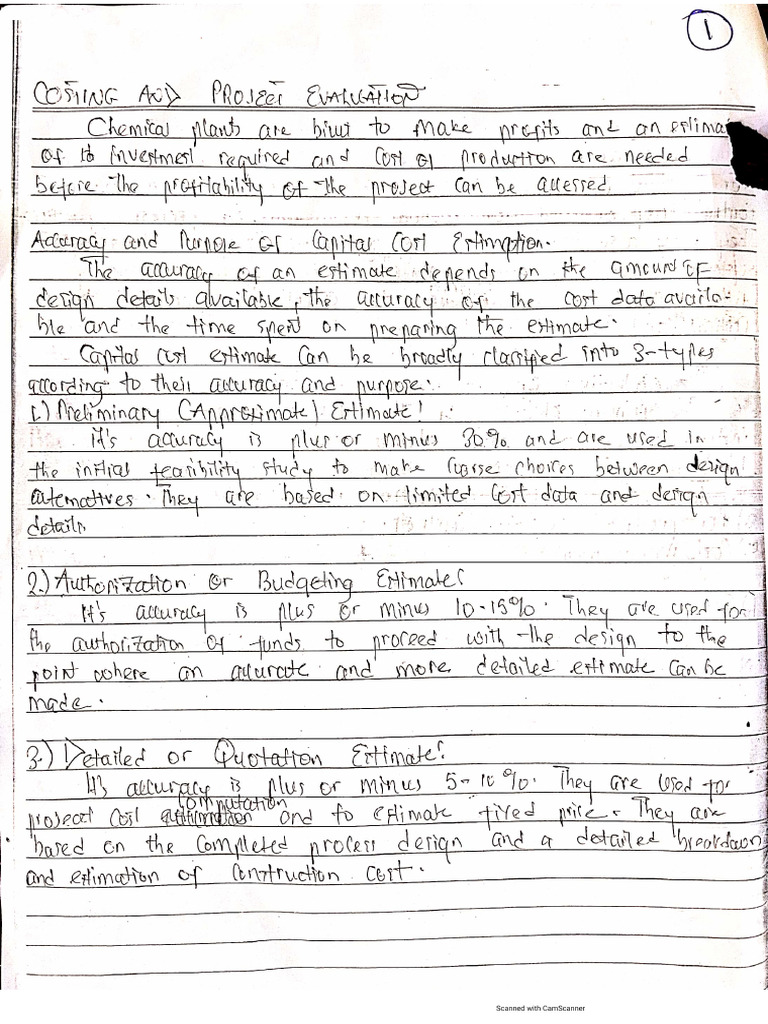 1
COSTING AND PROJECT EVALUATION
Chemical plants are built to make profits and an estima
of to investment required and cost of production are needed
before the profitability of the project can be assessed.
Accuracy and Purpose of Capital Cost Estimation.
The accuracy of an estimate depends on the amount of
design details available, the accuracy of the cost data availa-
ble and the time spent on preparing the estimate.
Capital cost estimate can be broadly classified into 3-types
according to their accuracy and purpose:
1.) Preliminary (Approximate) Estimate:
it's accuracy is plus or minus 30% and are used in
the initial feasibility study to make coarse choices between design
alternatives. They are based on limited cost data and design
details
2.) Authorization or Budgeting Estimate:
It's accuracy is plus or minus 10-15%. They are used for
the authorization of funds to proceed with the design to the
point where an accurate and more detailed estimate can be
made.
3.) Detailed or Quotation Estimate:
It's accuracy is plus or minus 5-10%. They are used for
computation
project cost and to estimate fixed price. They are
based on the completed process design and a detailed breakdown
and estimation of construction cost.
Scanned with CamScanner